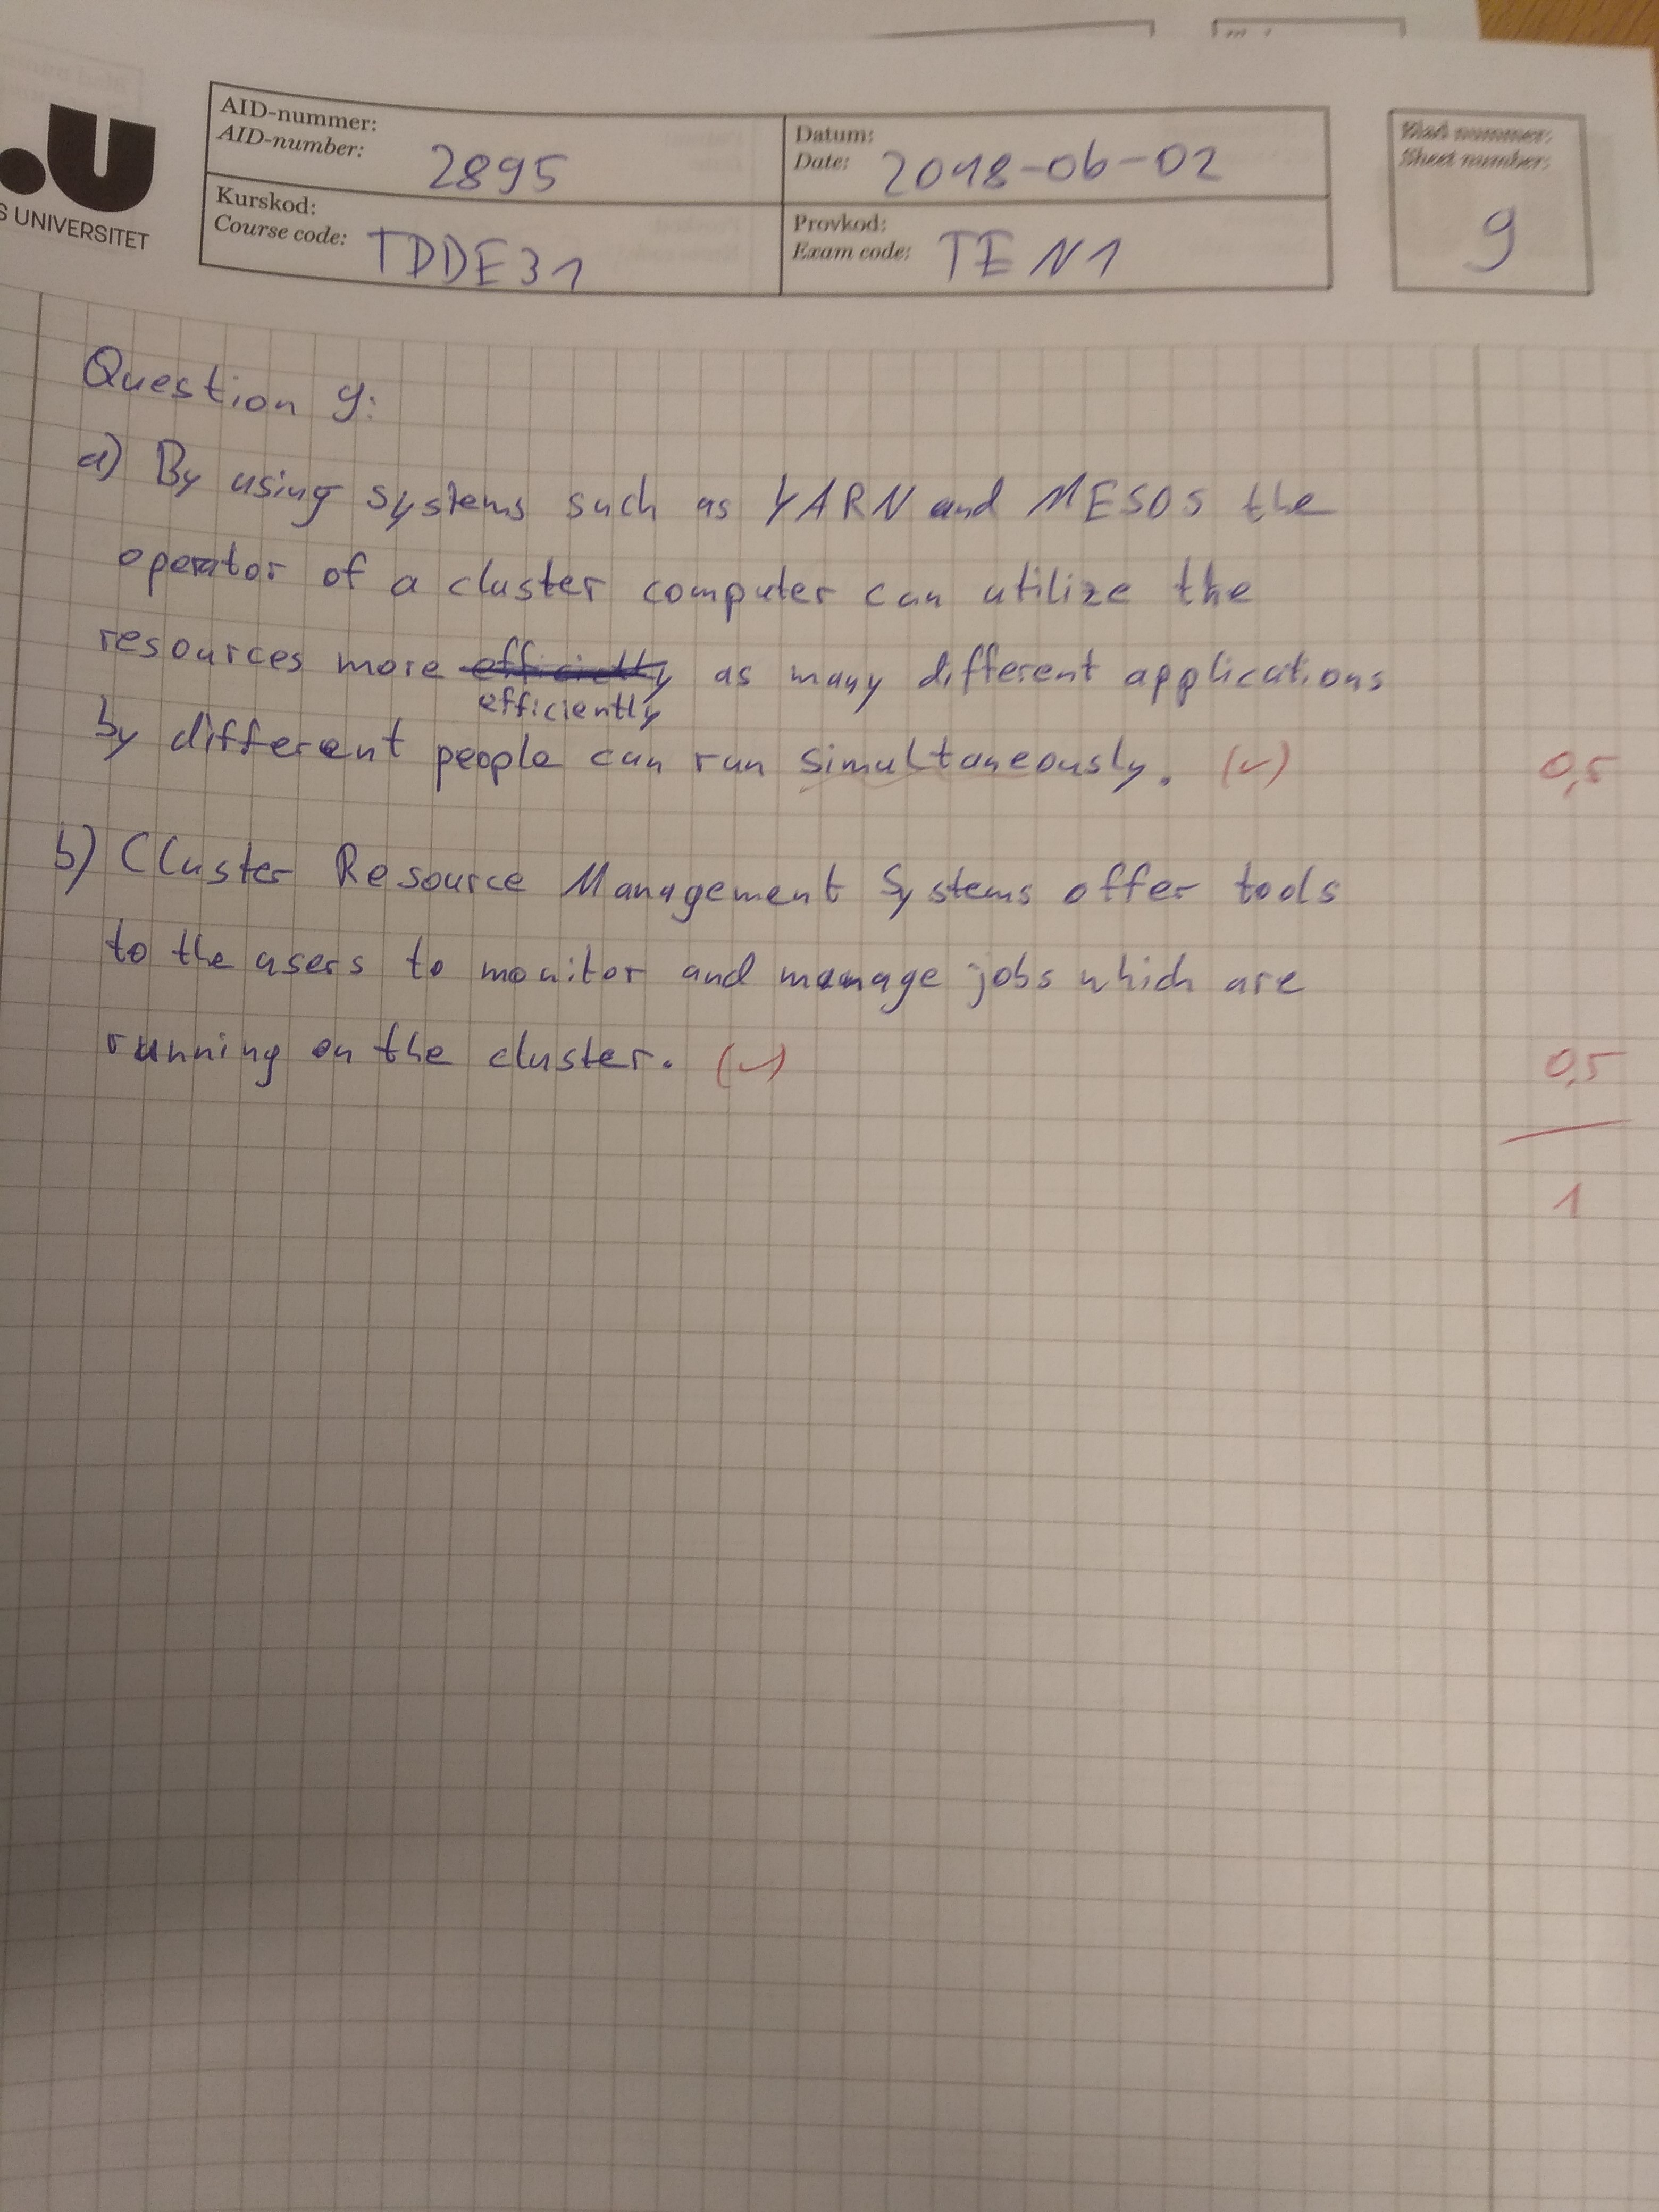 AID-nummer:
AID-number: 2895
Datum:
Date: 2018-06-02
Blad nummer:
Sheet number:
9
.U
S UNIVERSITET
Kurskod:
Course code: TDDE31
Provkod:
Exam code: TEN1
Question 9:
a) By using systems such as YARN and MESOS the
operator of a cluster computer can utilize the
resources more efficiently as many different applications
by different people can run simultaneously. (✓) 0,5
b) Cluster Resource Management Systems offer tools
to the users to monitor and manage jobs which are
running on the cluster. (✓) 0,5
1